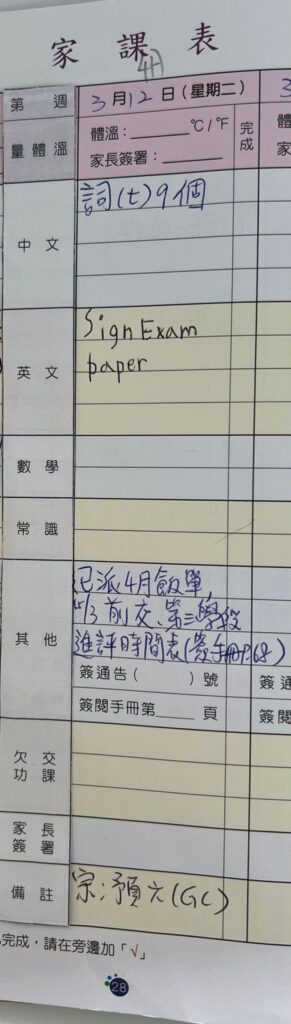 家課表
4月
第 週
3月12日(星期二)
3
量體溫
體溫:______°C/°F
家長簽署:______
完成
體
家
中文
詞(七)9個
英文
Sign Exam
paper
數學
常識
其他
已派4月飯單,
15/3前交、第三學段
進評時間表(簽手冊P.68)
簽通告( )號
簽通
簽閱手冊第____頁
簽閱
欠交
功課
家長
簽署
備註
宗:預六(GC)
完成,請在旁邊加「√」
28